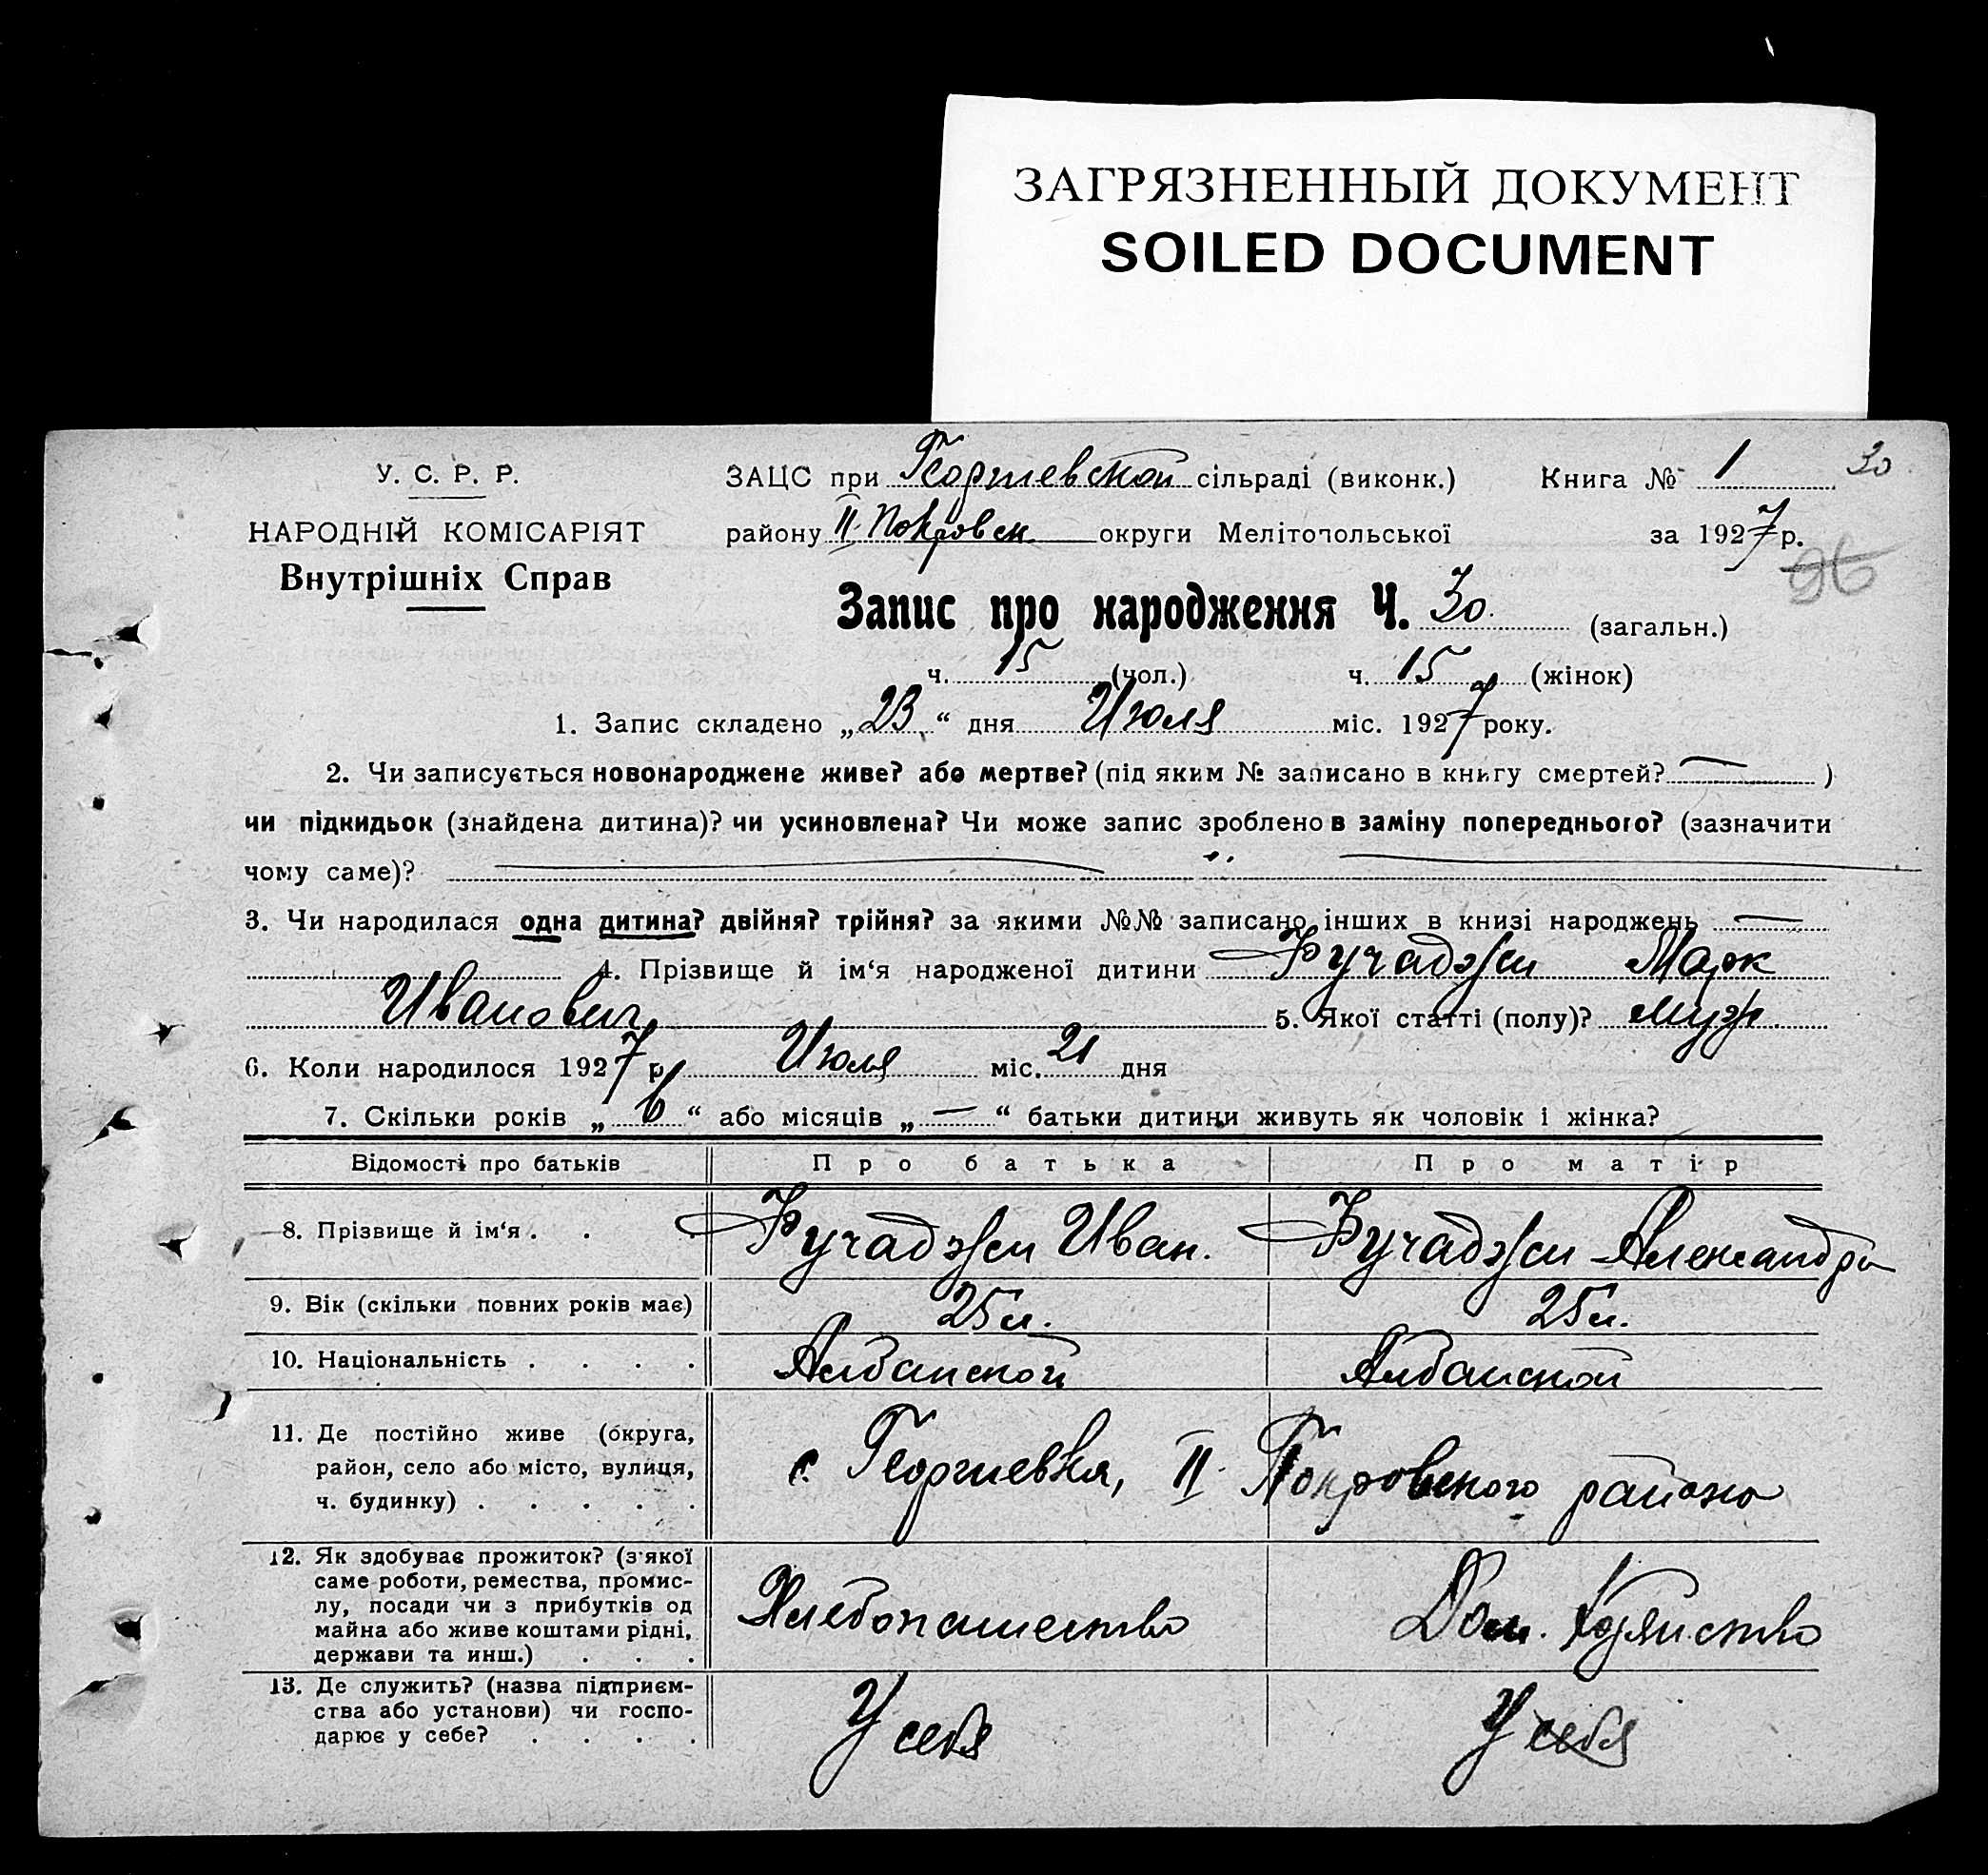 ЗАГРЯЗНЕННЫЙ ДОКУМЕНТ
SOILED DOCUMENT
У. С. Р. Р.
НАРОДНІЙ КОМІСАРІЯТ
Внутрішніх Справ
ЗАЦС при Георгиевской сільраді (виконк.) Книга № 1 30
району II Покровск округи Мелітопольської за 1927 р.
96
Запис про народження Ч. 30 (загальн.)
ч. 15 (чол.) ч. 15 (жінок)
1. Запис складено „23“ дня Июля міс. 1927 року.
2. Чи записується новонароджене живе? або мертве? (під яким № записано в книгу смертей? — )
чи підкидьок (знайдена дитина)? чи усиновлена? Чи може запис зроблено в заміну попереднього? (зазначити
чому саме)?
3. Чи народилася одна дитина? двійня? трійня? за якими №№ записано інших в книзі народжень —
4. Прізвище й ім‘я народженої дитини Бучаджи Марк
Иванович 5. Якої статті (полу)? муж.
6. Коли народилося 1927 р. Июля міс. 21 дня
7. Скільки років „6“ або місяців „—“ батьки дитини живуть як чоловік і жінка?
Відомості про батьків Про батька Про матір
8. Прізвище й ім‘я . . . Бучаджи Иван. Бучаджи Александра
9. Вік (скільки повних років має) 25 л. 25 л.
10. Національність . . . . Албанской Албанской
11. Де постійно живе (округа,
район, село або місто, вулиця,
ч. будинку) . . . . .
с. Георгиевка, II. Покровского района
12. Як здобуває прожиток? (з якої
саме роботи, ремества, промис-
лу, посади чи з прибутків од
майна або живе коштами рідні,
держави та инш.) . . .
Хлебопашество Дом. Хозяйство
13. Де служить? (назва підприєм-
ства або установи) чи госпо-
дарює у себе? . . . .
У себя У себя